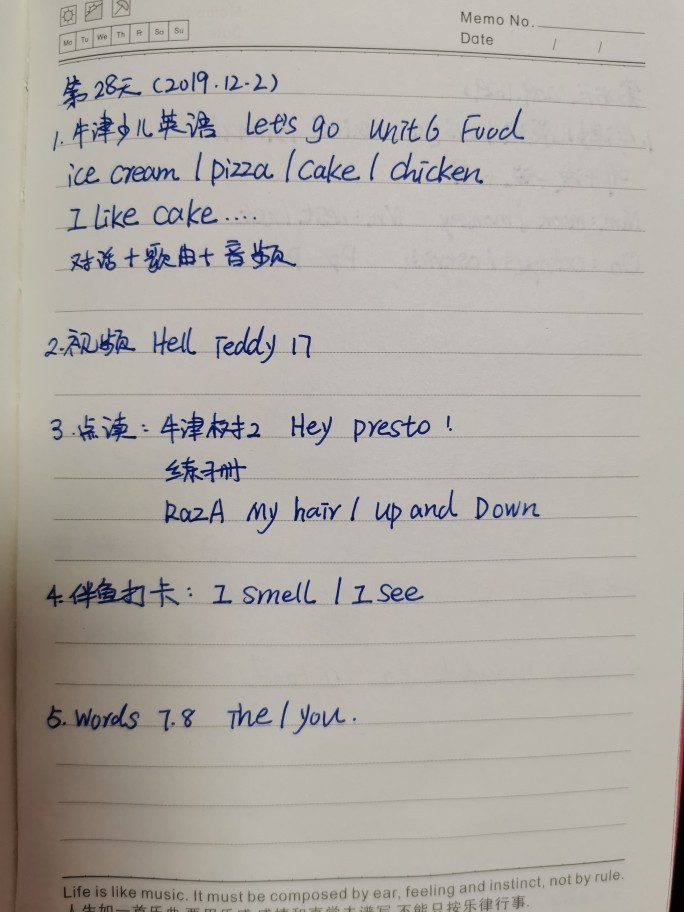 Memo No.
Mo Tu We Th Fr Sa Su
Date / /
第28天(2019.12.2)
1.牛津少儿英语 Let's go Unit6 Food
ice cream / pizza / cake / chicken
I like cake.....
对话+歌曲+音频
2.视频 Hell Teddy 17
3.点读:牛津树2 Hey presto!
练习册
RazA My hair / up and Down
4.伴鱼打卡: I smell / I see
5.Words 7.8 The / you.
Life is like music. It must be composed by ear, feeling and instinct, not by rule.
人生如一首乐曲,要用乐感,感情和直觉去谱写,不能只按乐律行事.